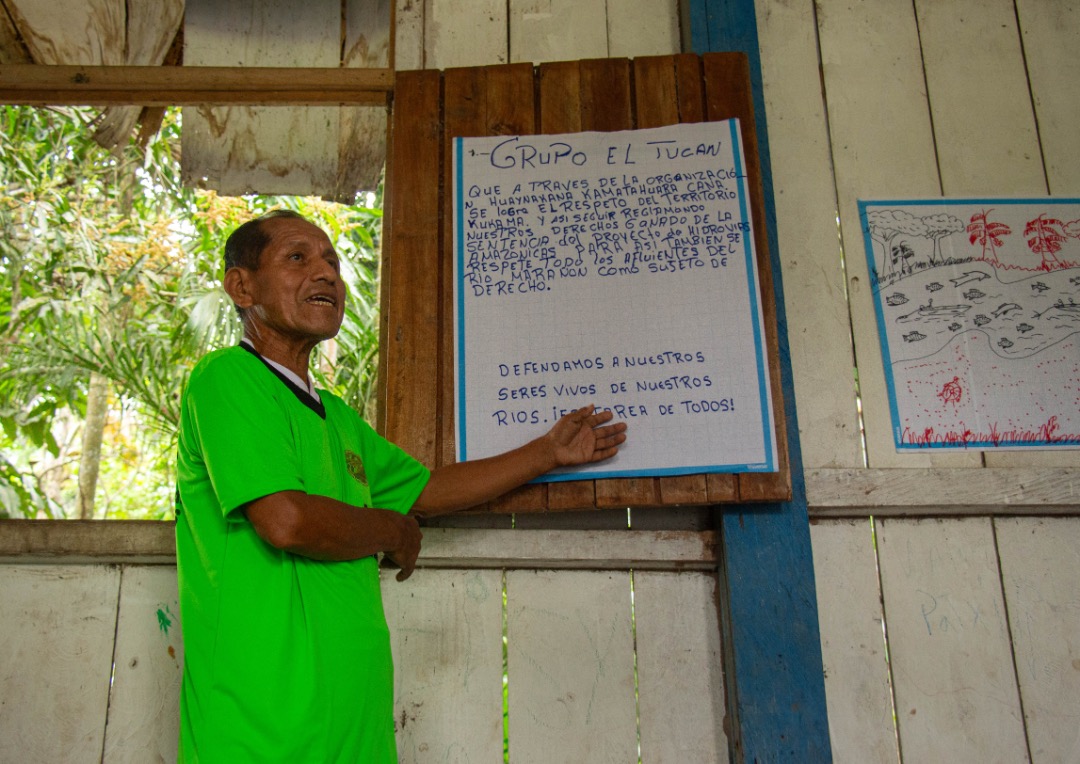 - GRUPO EL TUCAN
QUE A TRAVES DE LA ORGANIZACIÓ
N HUAYNAKANA KAMATAHUARA CANA,
SE logRe EL RESPETO DEL TERRITORIO
KUKAMA. Y ASI SEGUIR RECLAMANDO
NUESTROS DERECHOS GANADO DE LA
SENTENCIA dEl PROYECTO de HIDROVIAS
AMAZONICAS PARA ASI TAMBIEN SE
RESPETE TODO los AFLUENTES DEL
RIO MARAÑON COMO SUJETO DE
DERECHO.
DEFENDAMOS A NUESTROS
SERES VIVOS DE NUESTROS
RIOS. DE TODOS!